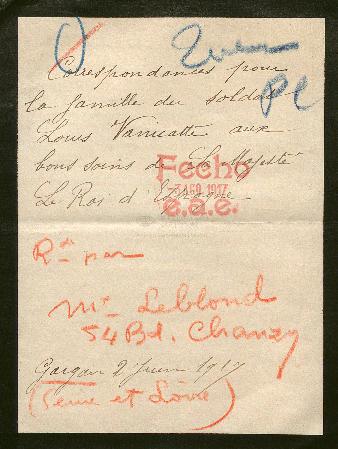 Correspondances pour
la famille du soldat
Louis aux
bons soins de Sa Majesté
Le Roi d'Espagne
Fecho
3 AGO. 1917
e.a.e.
R. de par
Mr Leblond
54 Bd. Chanzy
Gargan 2 Juin 1917
(Seine et Loire)